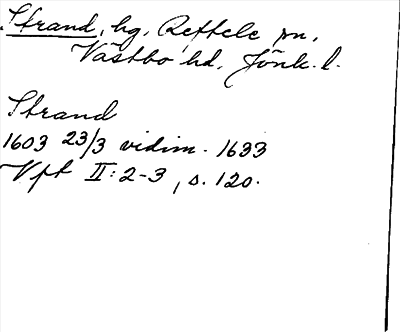 Strand, hg, Reftele sn,
Västbo hd, Jönk. l.
Strand
1603 23/3 vidim. 1633
Vpt II: 2-3, s. 120.